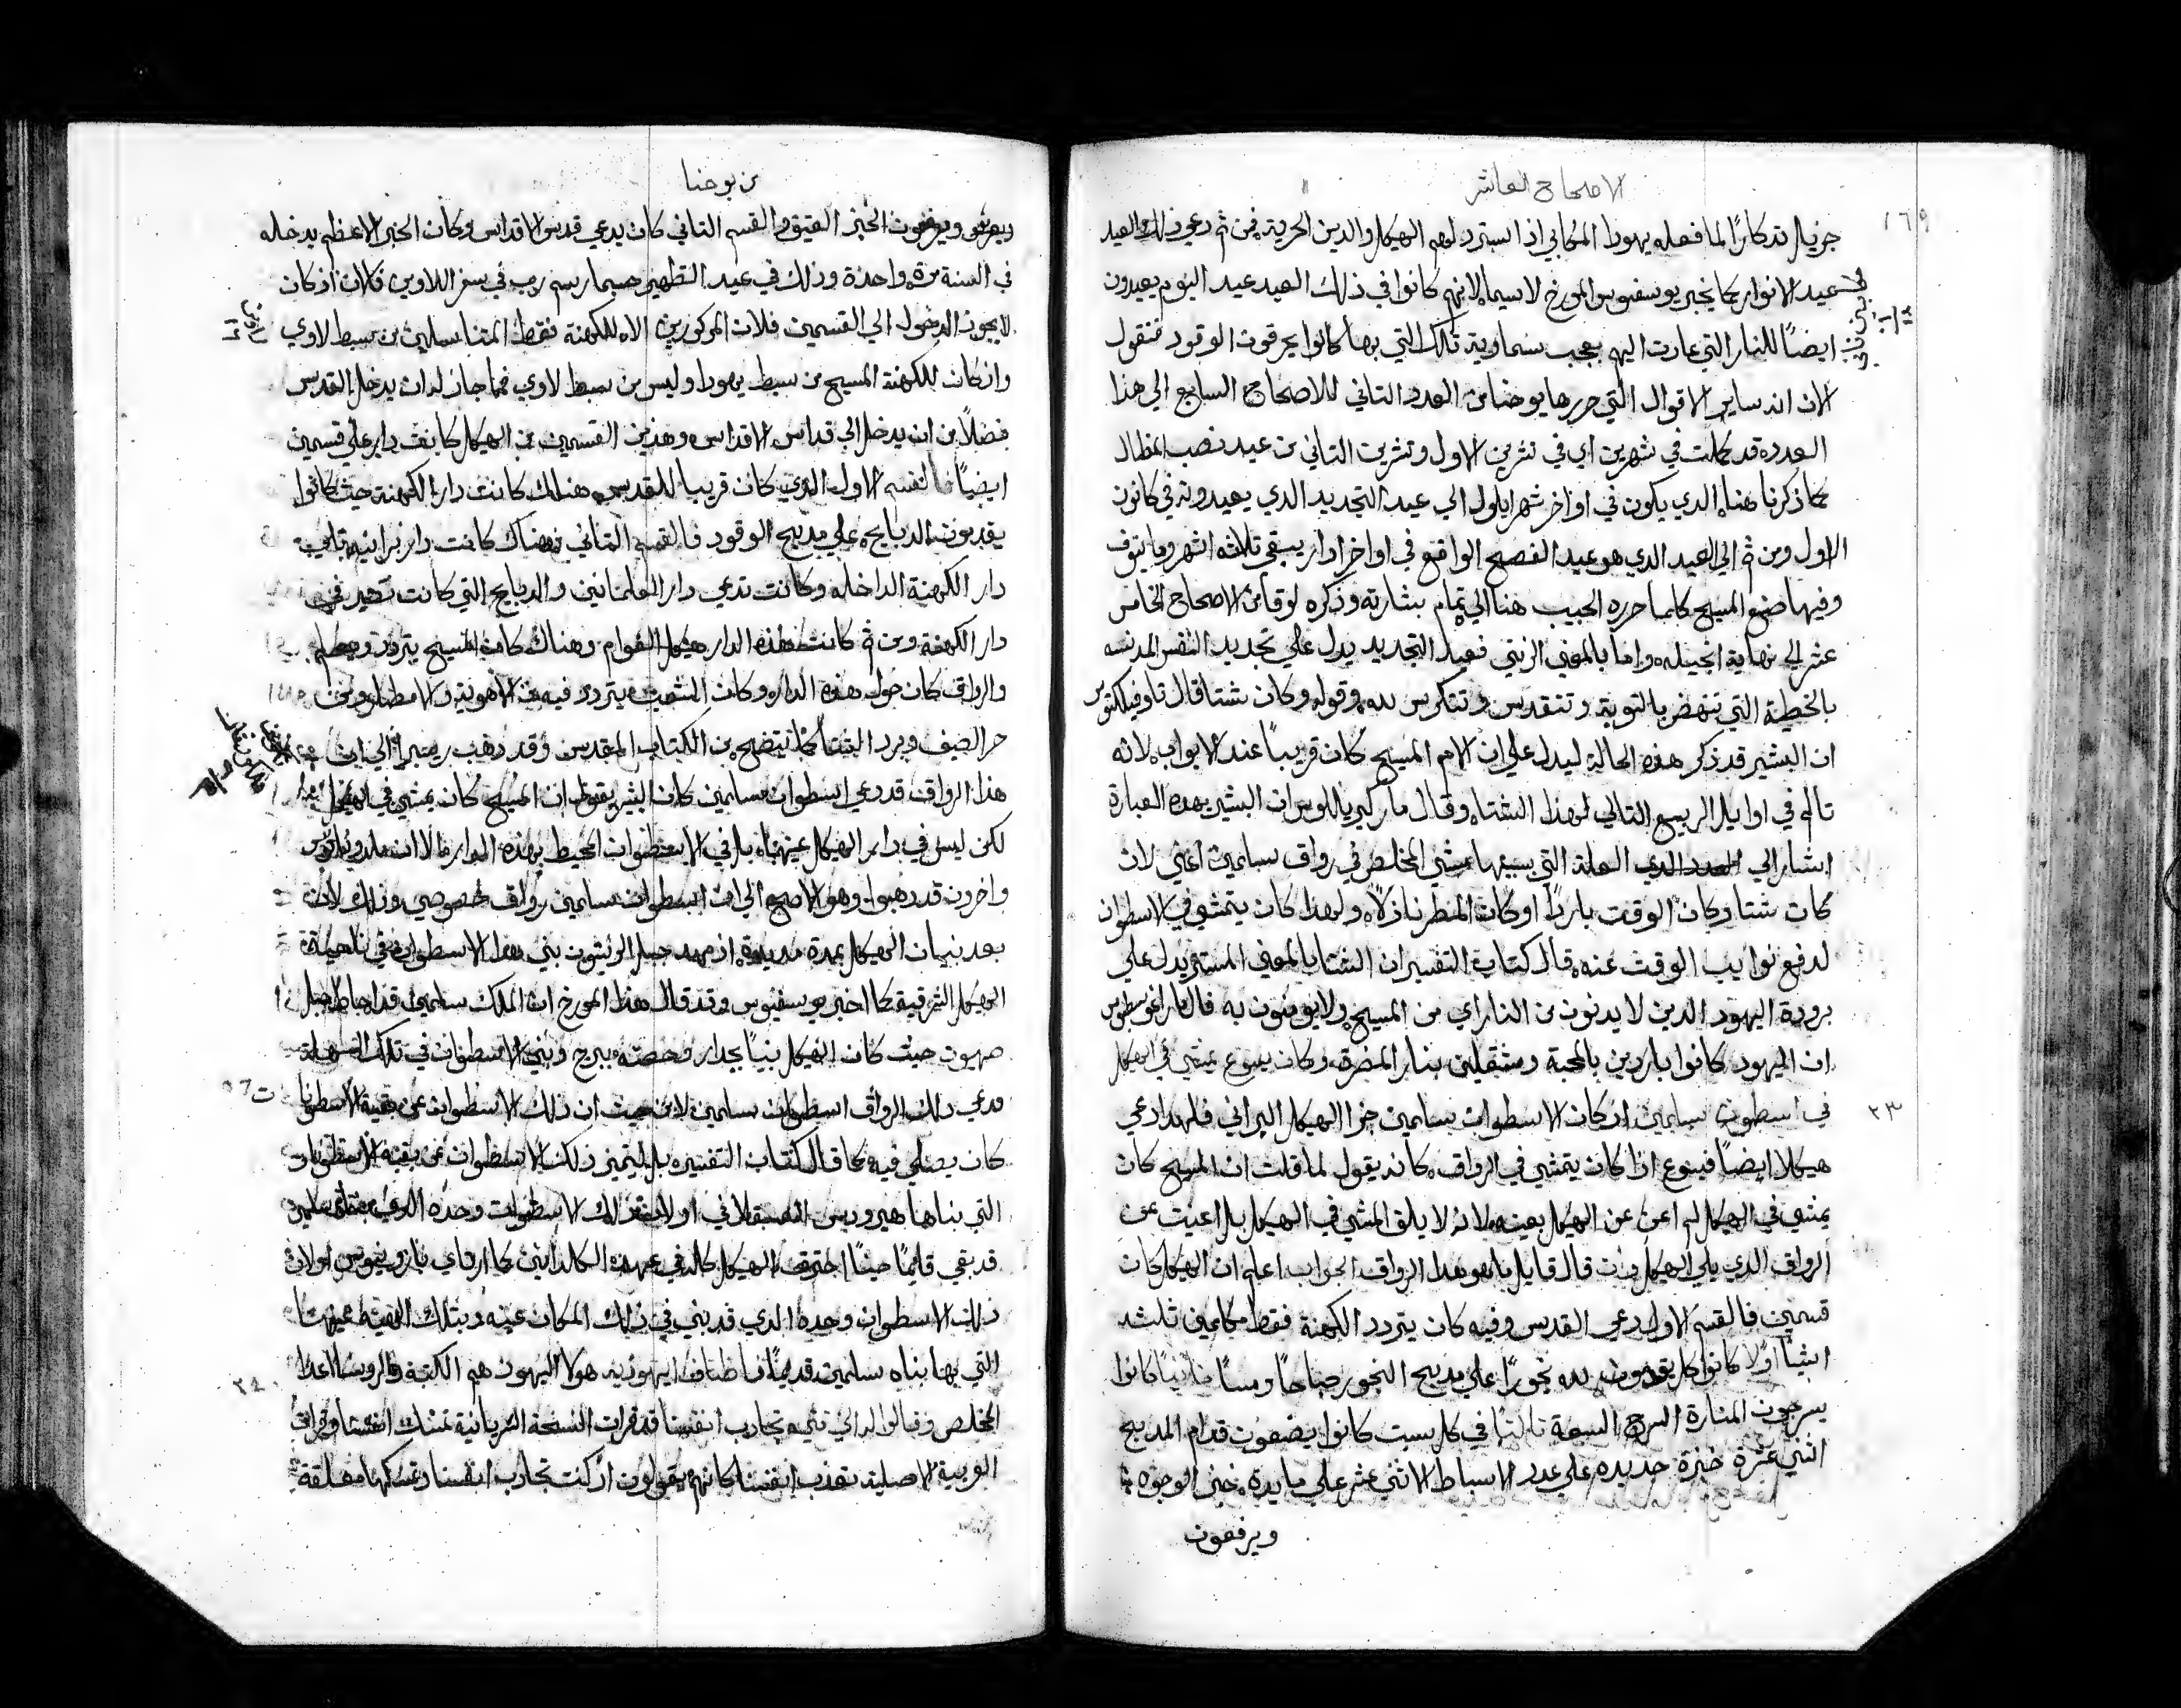 الاصحاح العاشر
١٦٩
جزيل تدكارًا لما فعله يهودا المكابي اذ استرد لهم الهيكل والدين الحرية فمن ثم دعي ذلك العيد
عيد الانوار كما يخبر يوسفيوس المورخ لاسيما لانهم كانوا في ذلك العيد عيد اليوم يعيدون
ايضًا للنار التي عادت اليهم بعجب سماوية تلك التي بها كانوا يحرقون الوقود فنقول
الان ان ساير الاقوال التي حررها يوحنا من العدد التاني للاصحاح السابع الي هذا
العدد قد كملت في شهرين اي في تشرين الاول وتشرين التاني من عيد نصب المظال
كما ذكرنا هناه الدي يكون في اواخر شهر ايلول الي عيد التجديد الدي يعيدونه في كانون
الاول ومن ثم الي العيد الدي هو عيد الفصح الواقع في اواخر ادار يبقي تلاثه اشهر وما ينوف
وفيها صنع المسيح كلما حرره الحبيب هنا الي تمام بشارته وذكره لوقا من الاصحاح الخامس
عشر الي نهاية انجيله واما بالمعني الرمزي فعيد التجديد يدل علي تجديد النفس المدنسه
بالخطية التي تنهض بالتوبة وتتقدس وتتكرس لله وقوله وكان شتا قال تاوفيلكتوس
ان البشير قد ذكر هذه الحالة ليدل علي ان الام المسيح كان قريبًا عند الابواب لانه
تالم في اوايل الربيع التالي لهذا الشتاه وقال مار كيريللوس ان البشير بهده العبارة
اشار الي العدد الدي العلة التي بسببها مشي المخلص في رواق سليمن اعني لان
كان شتا وكان الوقت باردًا او كان المطر نازلًا ولهدا كان يتمشي في الاسطوان
لدفع نوايب الوقت عنه قال كتاب التفسير ان الشتا بالمعني المستتر يدل علي
برودة اليهود الدين لا يدنون من النار اي من المسيح ولا يومنون به قال مار اغوسطينوس
ان اليهود كانوا باردين بالمحبة ومشتعلين بنار المضرة وكان يسوع يمشي في الهيكل
٢٣
في اسطوان سليمن اذ كان الاسطوان سليمن جزا الهيكل البراني فلهدا دعي
هيكلا ايضًا فيسوع اذًا كان يتمشي في الرواق كانه يقول لما قلت ان المسيح كان
يمشي في الهيكل لم اعن عن الهيكل بعينه لانه لا يليق المشي في الهيكل بل اعنيت عن
الرواق الدي يلي الهيكل وان قال قايل ما هو هدا الرواق الجواب اعلم ان الهيكل كان
قسمين فالقسم الاول دعي القدس وفيه كان يتردد الكهنة فقط مكملين تلتة
اشيا اولًا كانوا كل يوم لله بخورًا علي مدبح البخور صباحًا ومسا تانيًا كانوا
يسرجون المنارة السرج السبعة تالتًا في كل سبت كانوا يضعون قدام المدبح
اثنتي عشرة خبزة جديده علي عدد الاسباط الاثني عشر علي مايدة خبز الوجوه
ويرفعون
من يوحنا
ويرفعون الخبز العتيق والقسم التاني كان يدعي قدس الاقداس وكان الحبر الاعظم يدخله
في السنة مرة واحدة وذلك في عيد التطهير حسبما رسم رب في سفر اللاويين فلان اذ كان
لا يجوز الدخول الي القسمين المذكورين الا للكهنة فقط المتناسلين من سبط لاوي
واذ كان للكهنة المسيح من سبط يهودا وليس من سبط لاوي فما جاز له ان يدخل القدس
فضلًا من ان يدخل الي قداس الاقداس وهدين القسمين من الهيكل كانت دار علي قسمين
ايضًا فالقسم الاول الدي كان قريبا للقدس هنالك كانت دار الكهنة حيث كانوا
يقدمون الدبايح علي مدبح الوقود فالقسم التاني فهناك كانت دار برانيه تابعة
دار الكهنة الداخله وكانت تدعي دار العلمانيين والدبايح التي كانت تصير في
دار الكهنة ومن ثم كانت هذه الدار هيكل العوام وهناك كان المسيح يتردد ويعلم
والرواق كان حول هذه الدار وكان الشعب يتردد فيه من الاهوية والامطار ومن
حر الصيف وبرد الشتا كما يتضح من الكتاب المقدس وقد دهب ريبيرا الي ان
هذا الرواق قد دعي اسطوان سليمن كان البشير يقول ان المسيح كان يمشي في الهيكل
لكن ليس في داير الهيكل عينه بل في الاسطوان المحيط بهده الدار الا ان ملدوناتوس
واخرون قد دهبوا وهو الاصح الي ان اسطوان سليمن رواق خصوصي وذلك لانه
بعد بنيان الهيكل بمدة مديدة اذ مهد جبل الوثيقون بني هدا الاسطوان في ناحية
الهيكل الشرقية كما اخبر يوسفيوس وقد قال هذا المورخ ان الملك سليمن قد احاط جبل
صهيون حيث كان الهيكل بنيًا بجدار وحصنه ببرج وبني الاسطوان في تلك الجهة
ودعي ذلك الرواق اسطوان سليمن لا من حيث ان ذلك الاسطوان عن بقية الاسطوانات
كان يصلي فيه كما قال كتاب التفسير بل ليتميز ذلك الاسطوان عن بقية الاسطوانات
التي بناها هيرودس العسقلاني اولًا بقي ذلك الاسطوان وحده الدي بناه سليمن
قد بقي قايمًا حينًا احترق الهيكل كله في عهد الكلدانيين كما ارتاي بارونيوس اولان
ذلك الاسطوان وحده الدي قد بني في ذلك المكان عينه وبتلك الهيئة عينها
التي بها بناه سليمن قديمًا
٢٤
فاحاط اليهود به هولا اليهود هم الكتبة والروسا اعدا
المخلص وقالوا له الي متي تجادب انفسنا قد قرات النسخة السريانية تمسك انفسنا وقرات
العربية الاصلية تعذب انفسنا كانهم يقولون ان كنت تجادب انفسنا وتمسكها معلقة